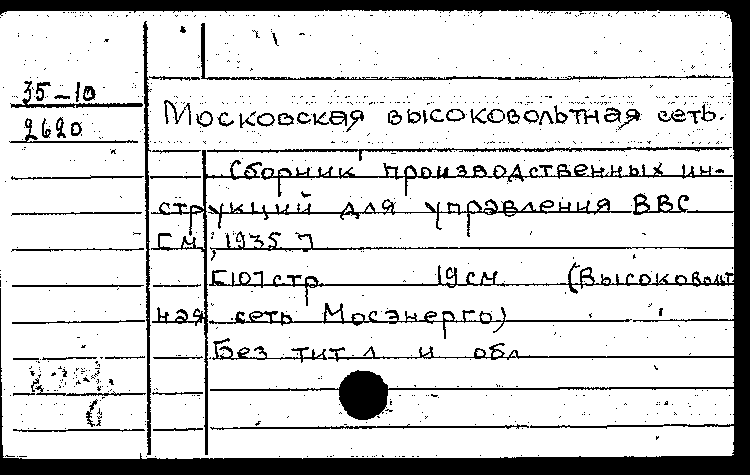 35-10
2620
Московская высоковольтная сеть.
Сборник производственных ин-
струкций для управления ВВС
[М, 1935]
[10] стр. 19см. (Высоковольт
ная сеть Мосэнерго)
Без тит л и обл